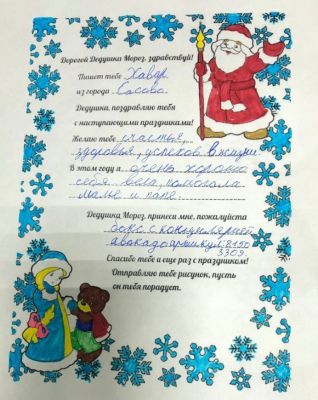 Дорогой Дедушка Мороз, здравствуй!
Пишет тебе Хавар
из города Сасово.
Дедушка, поздравляю тебя
с наступающими праздниками!
Желаю тебе счастья,
здоровья, успехов в жизни.
В этом году я очень хорошо
себя вела, помогала
маме и папе.
Дедушка Мороз, принеси мне, пожалуйста
бокс с канцелярией
авокадо артикул 8190
3309.
Спасибо тебе и еще раз с праздником!
Отправляю тебе рисунок, пусть
он тебя порадует.